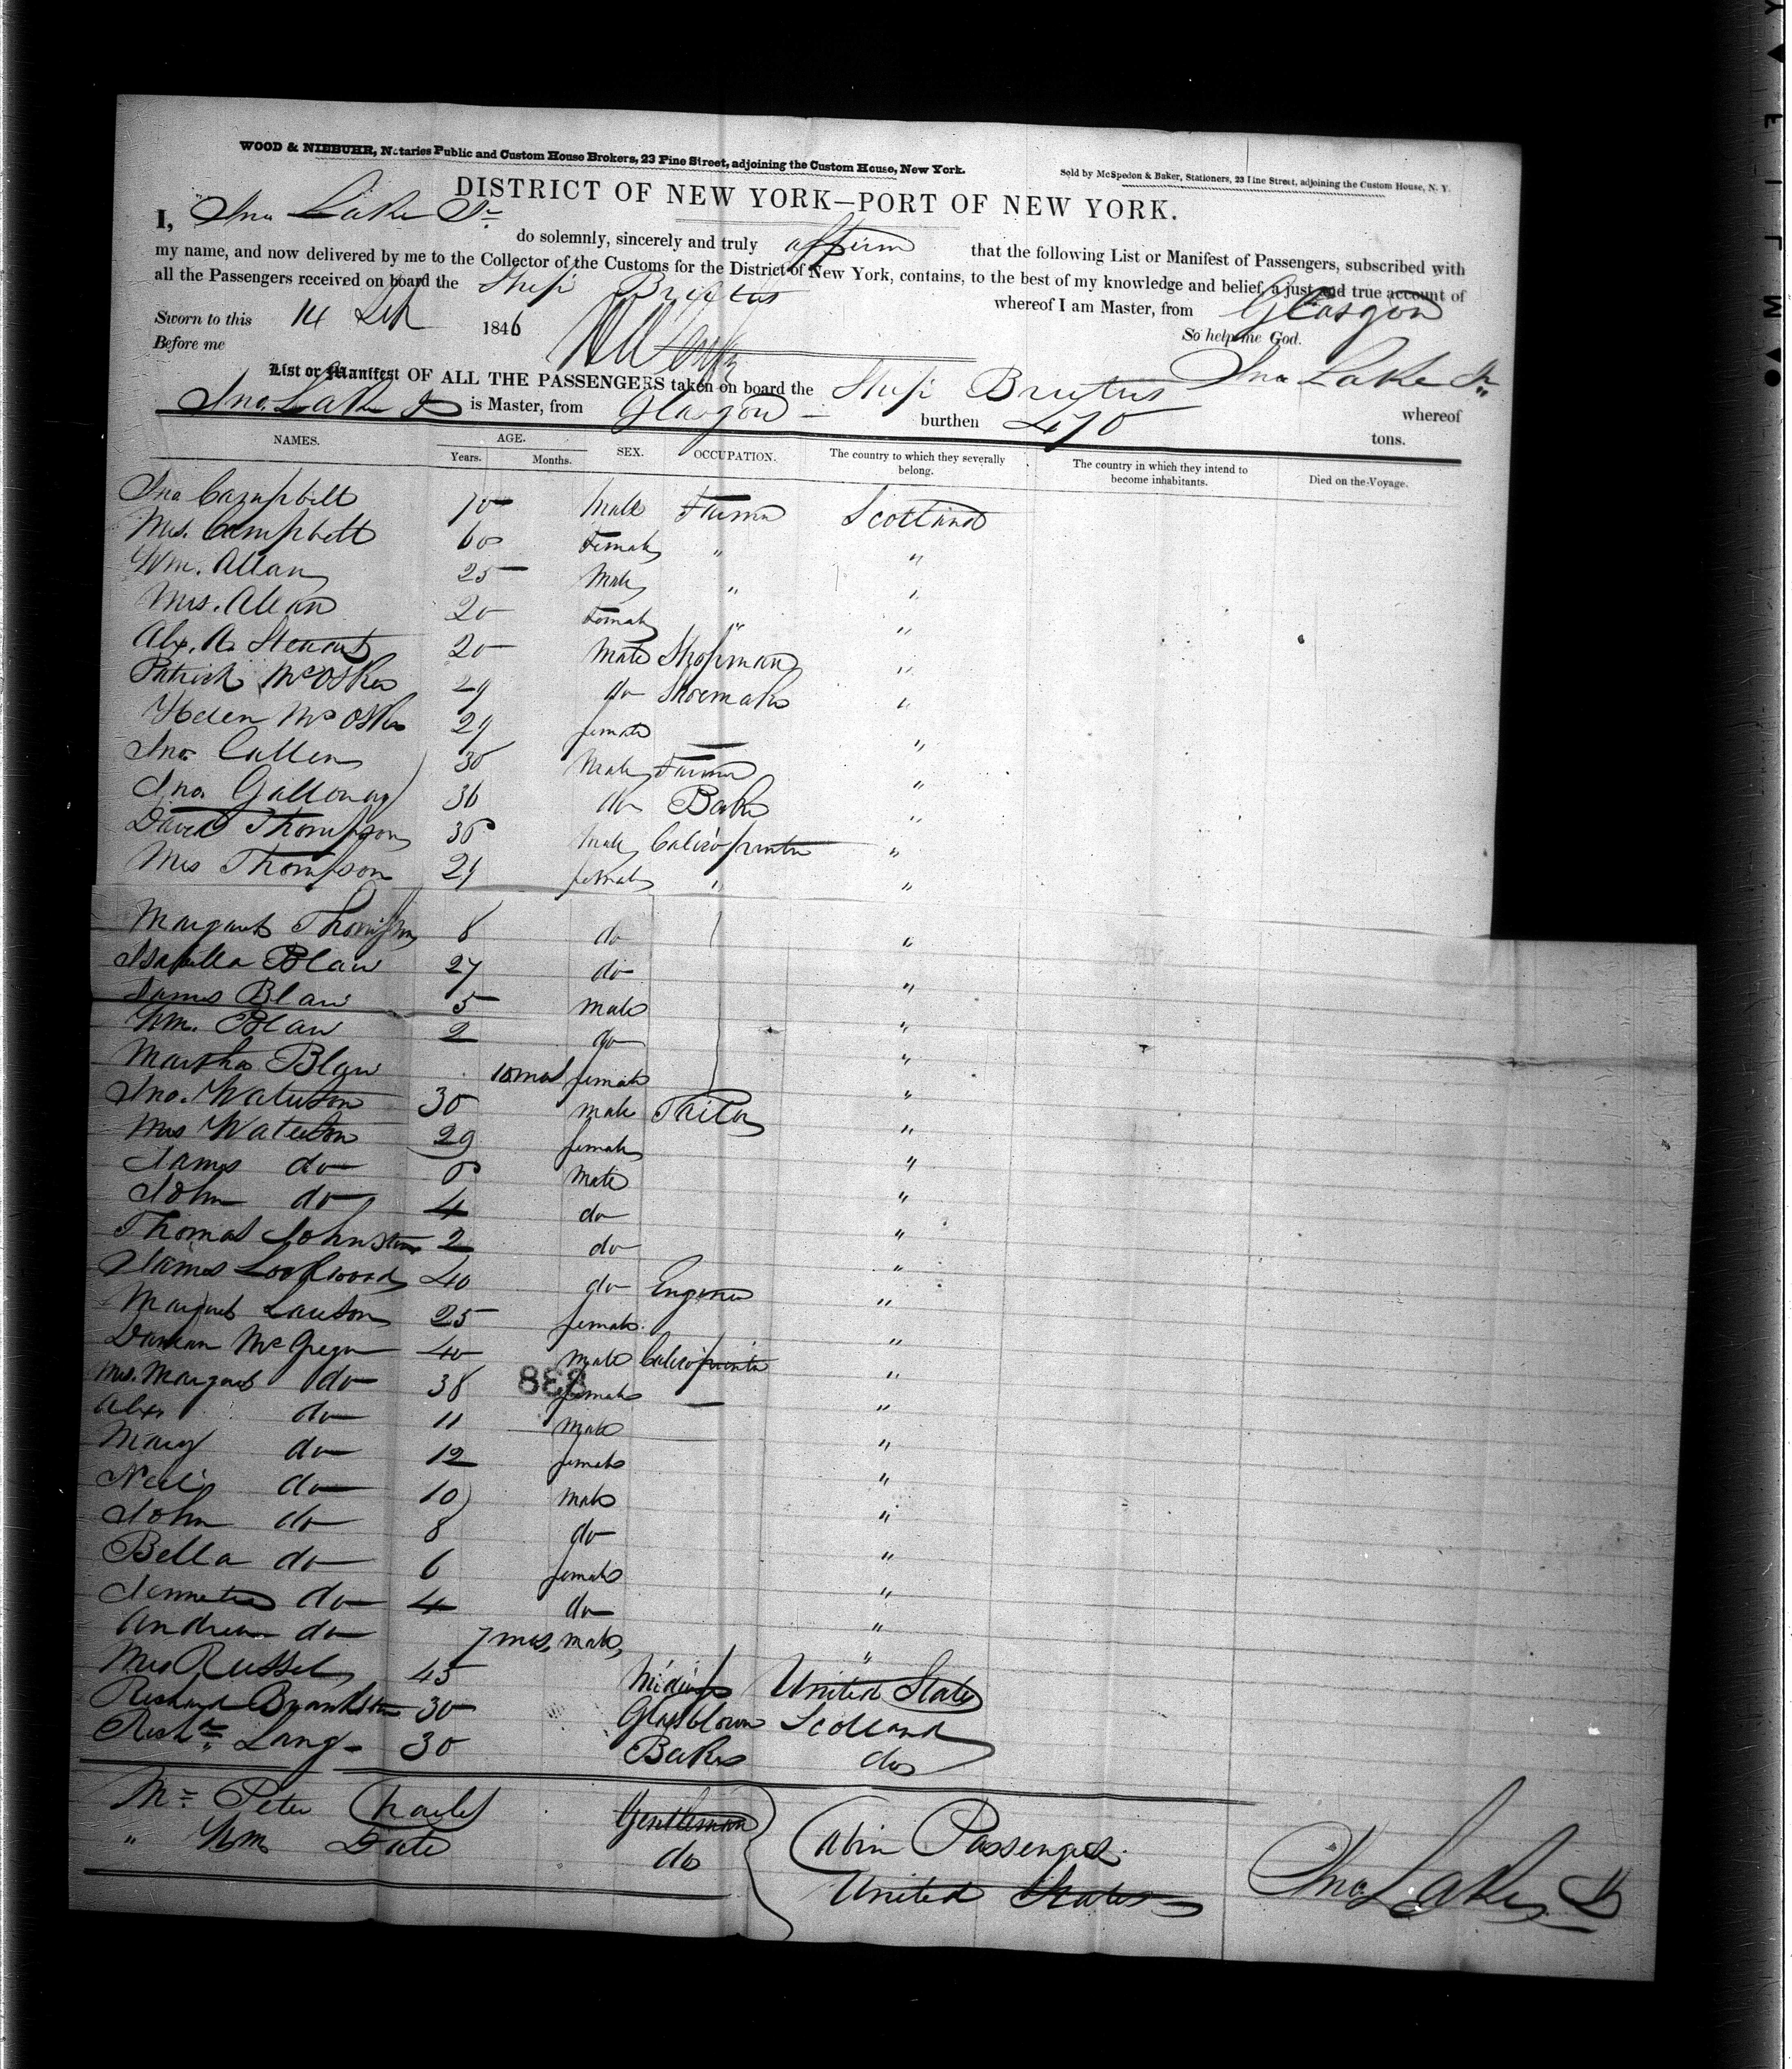 WOOD & NIEBUHR, Notaries Public and Custom House Brokers, 23 Pine Street, adjoining the Custom House, New York.
Sold by McSpedon & Baker, Stationers, 23 Pine Street, adjoining the Custom House, N. Y.
DISTRICT OF NEW YORK—PORT OF NEW YORK.
I, Jno Lake Jr do solemnly, sincerely and truly affirm that the following List or Manifest of Passengers, subscribed with
my name, and now delivered by me to the Collector of the Customs for the District of New York, contains, to the best of my knowledge and belief, a just and true account of
all the Passengers received on board the Ship Brutus whereof I am Master, from Glasgow
Sworn to this 14 1846 So help me God.
Before me Jno Lake Jr
List or Manifest OF ALL THE PASSENGERS taken on board the Ship Brutus whereof
Jno. Lake Jr is Master, from Glasgow burthen 470 tons.
NAMES. AGE. SEX. OCCUPATION. The country to which they severally belong. The country in which they intend to become inhabitants. Died on the Voyage.
Years. Months.
Jno Campbell 70 Male Farmer Scotland
Mrs. Campbell 60 Female " "
Wm. Allan 25 Male " "
Mrs. Allan 20 Female " "
Alex. A. Stewart 20 Male Shopman "
Patrick McOsker 29 do Shoemaker "
Helen McOsker 29 female "
Jno. Cullen 30 Male Farmer "
Jno. Galloway 36 do Baker "
David Thompson 30 male Calico printer "
Mrs Thompson 29 female " "
Margaret Thompson 8 do "
Isabella Blaw 27 do "
James Blaw 5 male "
Wm. Blaw 2 do "
Martha Blaw 10 mos female "
Jno. Waterson 30 male Tailor "
Mrs Waterson 29 female "
James do male "
John do 4 do "
Thomas Johnstone 2 do "
James Lockwood 40 do Engineer "
Margaret Lawson 25 female "
Duncan McGregor 40 male Calico printer "
Mrs. Margaret do 38 female "
838
Alex. do 11 male "
Mary do 12 female "
Neil do 10 male "
John do 8 do "
Bella do 6 female "
do 4 do "
Andrew do 7 mos, male, "
Mrs Russel 45 United States
Richard 30 Glassblower Scotland
Richd Lang 30 Baker do
Mr Peter Charles Gentleman Cabin Passengers
" Wm Date do United States
Jno. Lake Jr